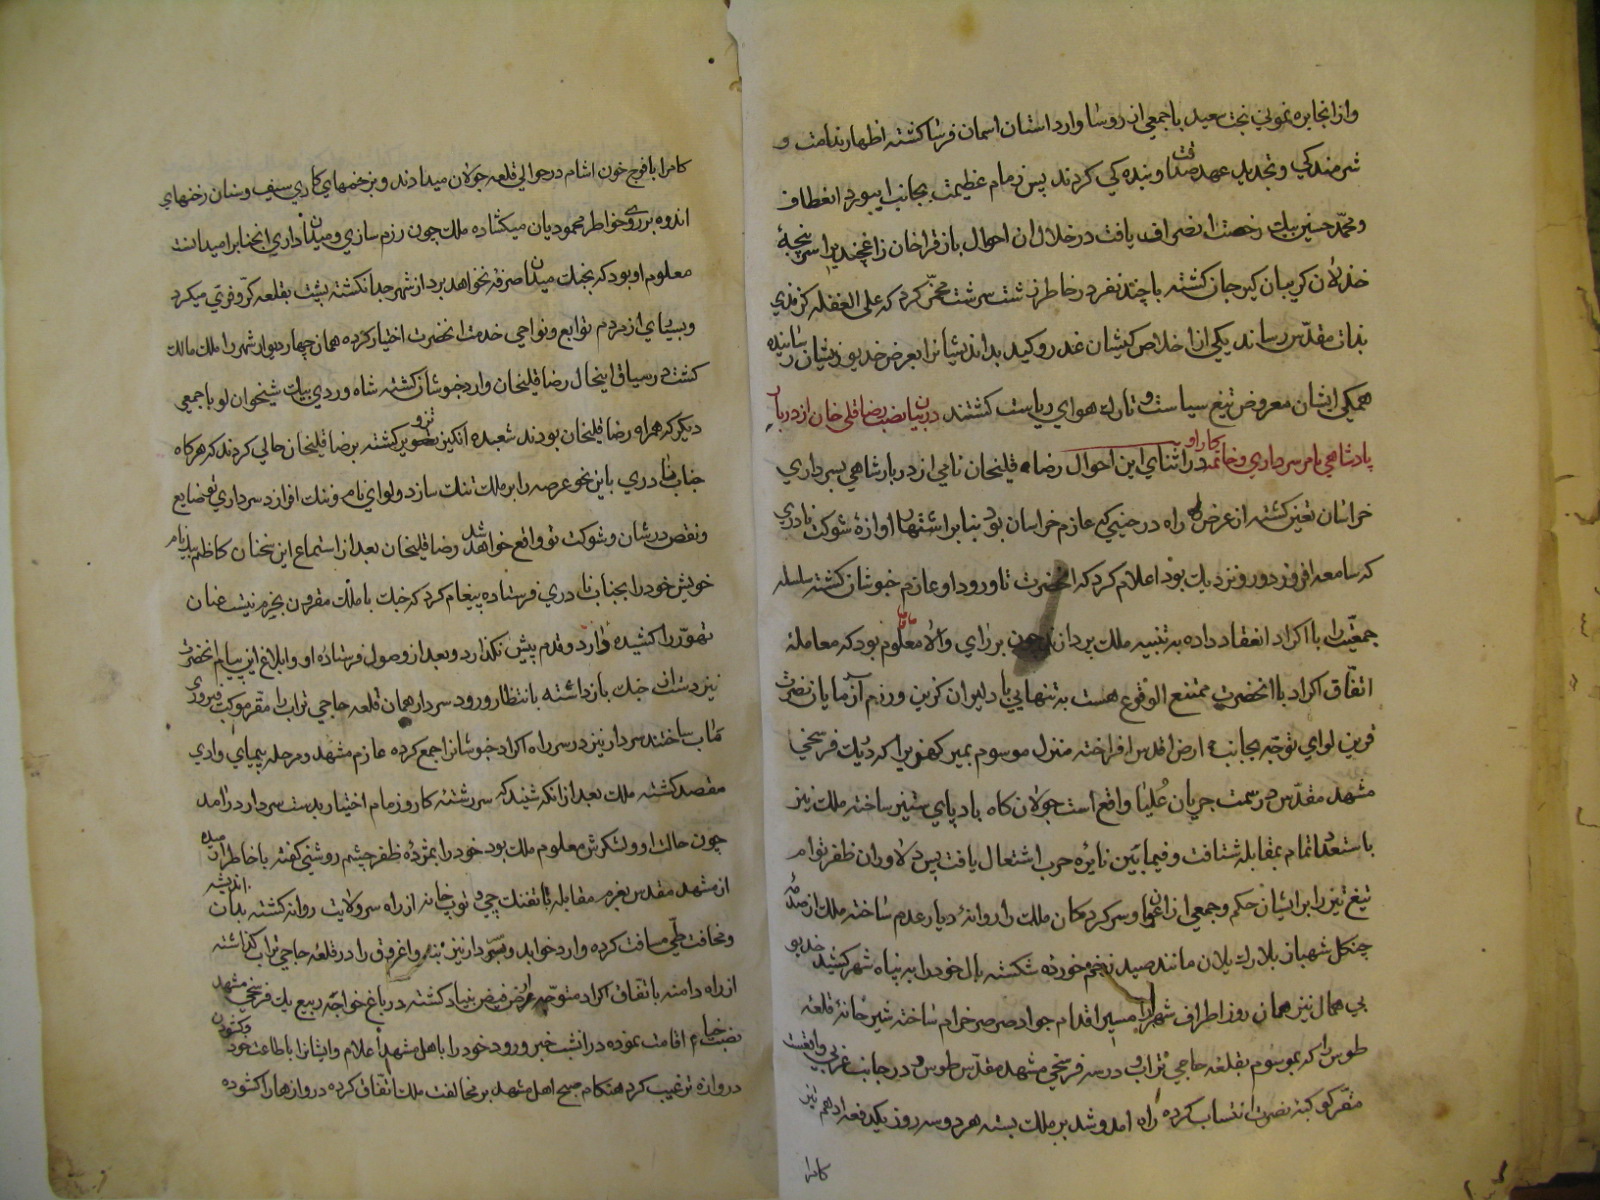 و از انجا بره نمونی بخت سعید با جمعی از روسا وارد استان اسمان فرسا کشته اظهار ندامت و
شرمندکی و تجدید عهد صداقت و بنده کی کردند پس زمام عظیمت بجانب ابیورد انعطاف
و محمد حسین بیک رخصت انصراف یافت در خلال ان احوال باز قراخان زاغچند برا سرپنجهٔ
خذلان کریبان کیر جان کشته با چند نفر در خاطر زشت سرشت مخمر کرد که علی الغفله کزندی
بذات مقدس رساند یکی از اخلاص کیشان غدر و کید بداندیشانرا بعرض خدیو زیشان رسانیده
همکی ایشان معروض تیغ سیاست و تارک هوای ریاست کشتند در بیان نصب رضا قلی خان از دربار
پادشاهی بامر سرداری و خاتمه کار او در اثنای این احوال رضا قلیخان نامی از دربار شاهی بسرداری
خراسان تعین کشته از عرض راه در حینی که عازم خراسان بود بنابر اشتهار اوازهٔ شوکت نادری
که سامعه افروز دور و نزدیک بود اعلام کرد که انحضرت تا ورود او عازم خبوشان کشته سلسله
جمعیت را با اکراد انعقاد داده به تنبیه ملک پردازند چون بر رای والا معلوم بود که معاملهٔ
اتفاق اکراد با انحضرت ممتنع الوقوع هست به تنهایی با دلیران کزین و رزم آزمایان نصرت
قرین لوای توجه بجانب ارض اقدس افراخته منزل موسوم بمیر کهنویرا که در یک فرسخی
مشهد مقدس در سمت جریان عُلیا واقع است جولان کاه باد پای ستیز ساخته ملک نیز
باستعداد تمام بمقابله شتافت و فیما بین نایره حرب اشتعال یافت پس دلاوران ظفر توام
تیغ تیز را بر ایشان حکم و جمعی از اعیان و سرکردکان ملک را روانهٔ دیار عدم ساخته ملک از صدمهٔ
چنکل شهباز بلارک یلان مانند صید زخم خورده شکسته بال خود را به پناه شهر کشید خدیو
بی همال نیز همان روز اطراف شهر را مسیر اقدام جواد صرصر خرام ساخته شیر خانهٔ قلعه
طوس را که بموسوم بقلعه حاجی تراب و در سه فرسخی مشهد مقدس طوس و در جانب غربی واقعست
مقر کوکبه نصرت انتساب کرده راه امد و شد بر ملک بسته هر دو سه روز یکدفعه ادهم تیز
کامرا
کامرا با فوج خون اشام در حوالی قلعه جولان میدادند و بزخمهای کاری سیف و سنان رخنهای
اندوه بر روی خواطر محمودیان میکشاده ملک چون رزم سازی و میدان داری انجنابرا میدانست
معلوم او بود که بجنک میدان صرفه نخواهد برد از شهر جدا نکشته پشت بقلعه کر و فری میکرد
و بسیاری از مردم توابع و نواحی خدمت انحضرت اختیار کرده همان چهار دیوار شهر را ملک مالک
کشت در سیاق اینحال رضا قلیخان وارد خبوشان کشته شاه وردی بیک شیخوان لو با جمعی
دیکر که همراه رضا قلیخان بودند شعبده انکیز تزویر کشته بر رضا قلیخان حالی کردند که هرکاه
جناب نادری باین نحو عرصه را بر ملک تنک سازد و لوای نام و ننک افرازد سرداری تو ضایع
و نقص در شان و شوکت تو واقع خواهد شد رضا قلیخان بعد از استماع این سخنان کاظم بیک نام
خویش خود را بجناب نادری فرستاده پیغام کرد که جنک با ملک مقرون بحزم نیست عنان
تهور را کشیده دارد و قدم پیش نکذارد و بعد از وصول فرستاده او و ابلاغ این پیام انحضرت
نیز دست از جنک بازداشته بانتظار ورود سردار همان قلعه حاجی تراب را مقر موکب فیروزی
مٔاب ساختند سردار نیز در سر راه اکراد خبوشانرا جمع کرده عازم مشهد و مرحله پیمای وادی
مقصد کشته ملک بعد از انکه شنید که سر رشتهٔ کار و زمام اختیار بدست سردار در امد
چون حالت او و لشکرش معلوم ملک بود خود را بمژدهٔ ظفر چشم روشنی کفته با خاطر ارمیده
از مشهد مقدس بعزم مقابله با تفنکچی و توپ خانه از راه سر ولایت روانه کشته بدان اندیشه
و مخافت طی مسافت کرده وارد خوابد و سردار نیز بنه و اغروق را در قلعهٔ حاجی تراب کذاشته
از راه دامنه باتفاق اکراد متوجه ارض فیض بنیاد کشته در باغ خواجه ربیع یک فرسخی مشهد
نصب خیام اقامت نموده در انشب خبر ورود خود را باهل مشهد اعلام و ایشانرا باطاعت خود و کشودن
دروازه ترغیب کرد هنکام صبح اهل مشهد بر مخالفت ملک اتفاق کرده دروازها را کشوده